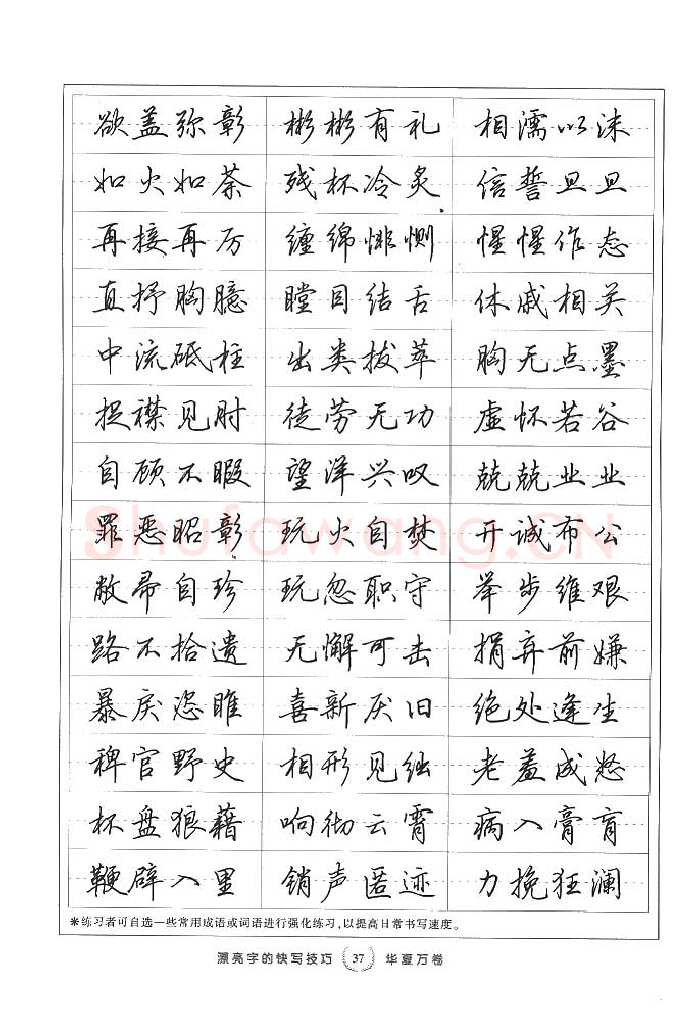 欲盖弥彰 彬彬有礼 相濡以沫
如火如荼 残杯冷炙 信誓旦旦
再接再厉 缠绵悱恻 惺惺作态
直抒胸臆 瞠目结舌 休戚相关
中流砥柱 出类拔萃 胸无点墨
捉襟见肘 徒劳无功 虚怀若谷
自顾不暇 望洋兴叹 兢兢业业
罪恶昭彰 玩火自焚 开诚布公
敝帚自珍 玩忽职守 举步维艰
路不拾遗 无懈可击 捐弃前嫌
暴戾恣睢 喜新厌旧 绝处逢生
稗官野史 相形见绌 老羞成怒
杯盘狼藉 响彻云霄 病入膏肓
鞭辟入里 销声匿迹 力挽狂澜
※练习者可自选一些常用成语或词语进行强化练习,以提高日常书写速度。
漂亮字的快写技巧 37 华夏万卷
Shufawang.CN